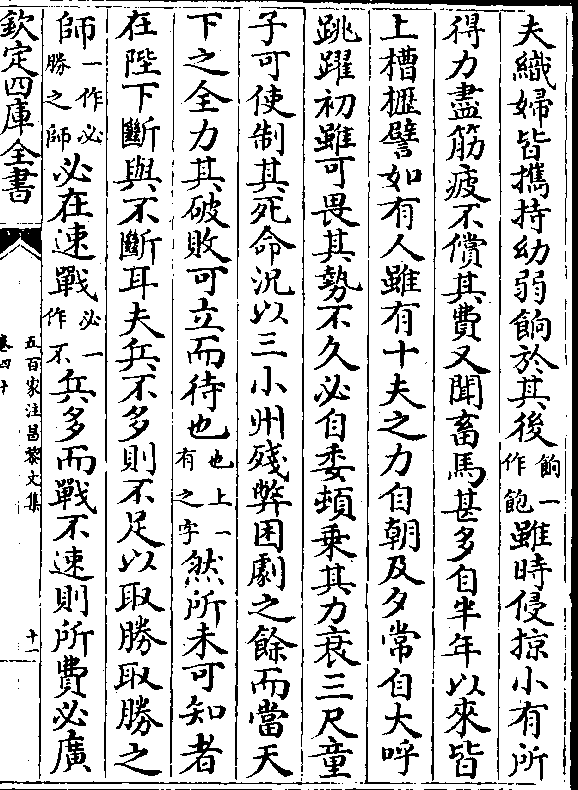 夫織婦皆攜持幼弱餉於其後餉一作飽雖時侵掠小有所
得力盡筋疲不償其費又聞畜馬甚多自半年以來皆
上槽櫪譬如有人雖有十夫之力自朝及夕常自大呼
跳躍初雖可畏其勢不久必自委頓乗其力衰三尺童
子可使制其死命況以三小州殘弊困劇之餘而當天
下之全力其破敗可立而待也也上一有之字然所未可知者
在陛下斷與不斷耳夫兵不多則不足以取勝取勝之
師一作必勝之師必在速戰必一作不兵多而戰不速則所費必廣
欽定四庫全書
五百家注昌黎文集
卷四十
十一